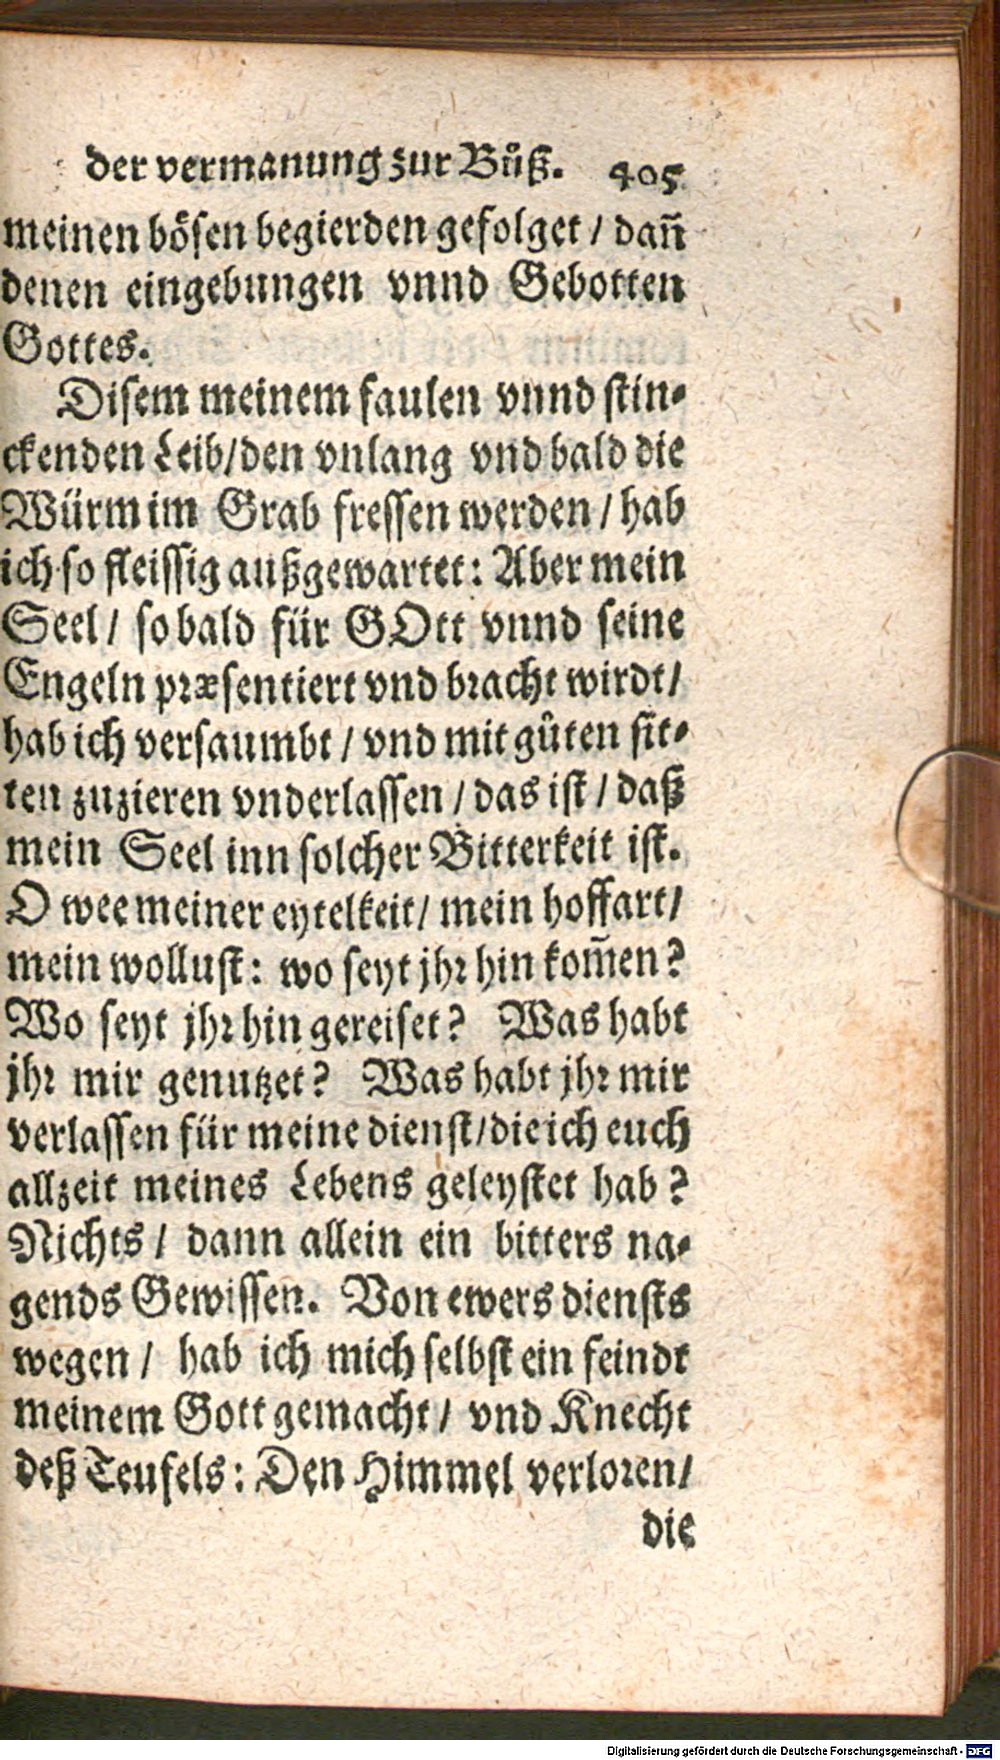 der vermanung zur Bůß. 405
meinen bösen begierden gefolget / dañ
denen eingebungen vnnd Gebotten
Gottes.
Disem meinem faulen vnnd stin-
ckenden Leib/den vnlang vnd bald die
Würm im Grab fressen werden / hab
ich so fleissig außgewartet: Aber mein
Seel / so bald für GOtt vnnd seine
Engeln præsentiert vnd bracht wirdt /
hab ich versaumbt / vnd mit gůten sit-
ten zuzieren vnderlassen / das ist / daß
mein Seel inn solcher Bitterkeit ist.
O wee meiner eytelkeit / mein hoffart /
mein wollust: wo seyt jhr hin kom̃en?
Wo seyt jhr hin gereiset? Was habt
jhr mir genutzet? Was habt jhr mir
verlassen für meine dienst / die ich euch
allzeit meines Lebens geleystet hab?
Nichts / dann allein ein bitters na-
gends Gewissen. Von ewers diensts
wegen / hab ich mich selbst ein feindt
meinem Gott gemacht / vnd Knecht
deß Teufels: Den Himmel verloren /
die
Digitalisierung gefördert durch die Deutsche Forschungsgemeinschaft - DFG